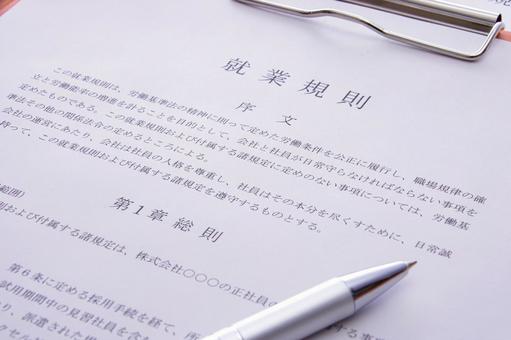 就業規則
序文
この就業規則は、労働基準法の精神に則って定めた労働条件を公正に履行し、職場規律の確
立と労働能率の増進を計ることを目的として、会社と社員が日常守らなければならない事項を
定めたものである。この就業規則および付属する諸規定に定めのない事項については、労働基
準法その他の関係法令の定めるところによる。
会社の運営にあたり、会社は社員の人格を尊重し、社員はその本分を尽くすために、日常誠
持って、この就業規則および付属する諸規定を遵守するものとする。
第1章総則
範囲)
則および付属する諸規定は、株式会社○○○の正社員の
第6条に定める採用手続を経て、所
試用期間中の見習社員を含
り、派遣された